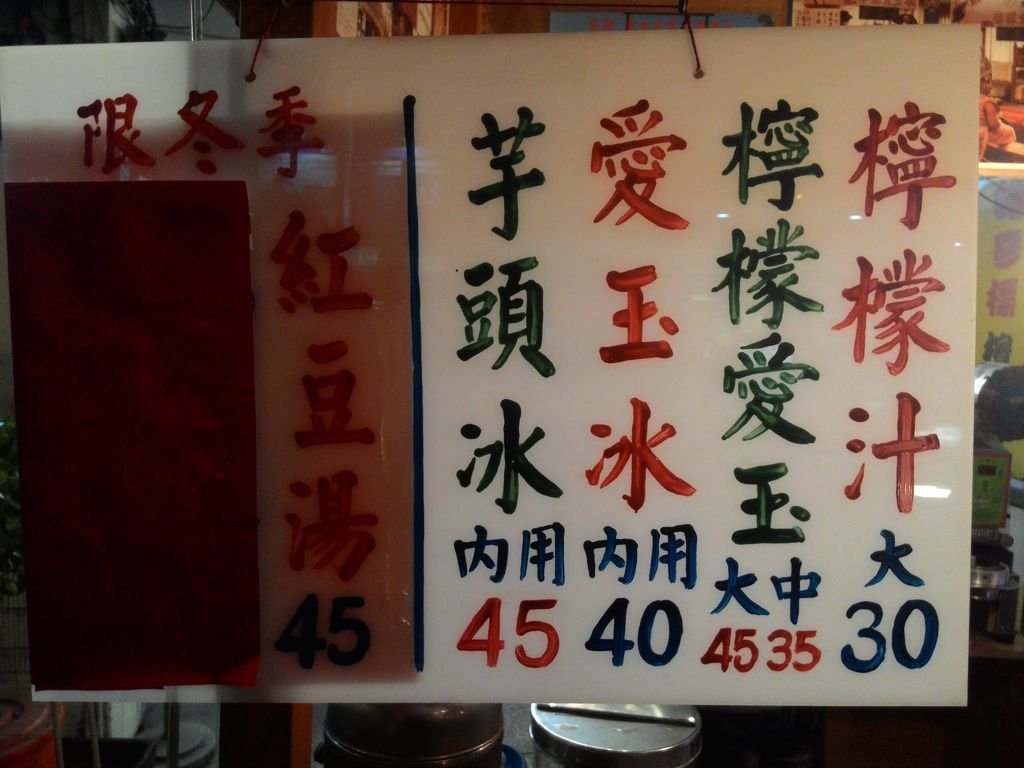 檸檬汁
大
30
檸檬愛玉
大中
45 35
愛玉冰
內用
40
芋頭冰
內用
45
限冬季
紅豆湯
45